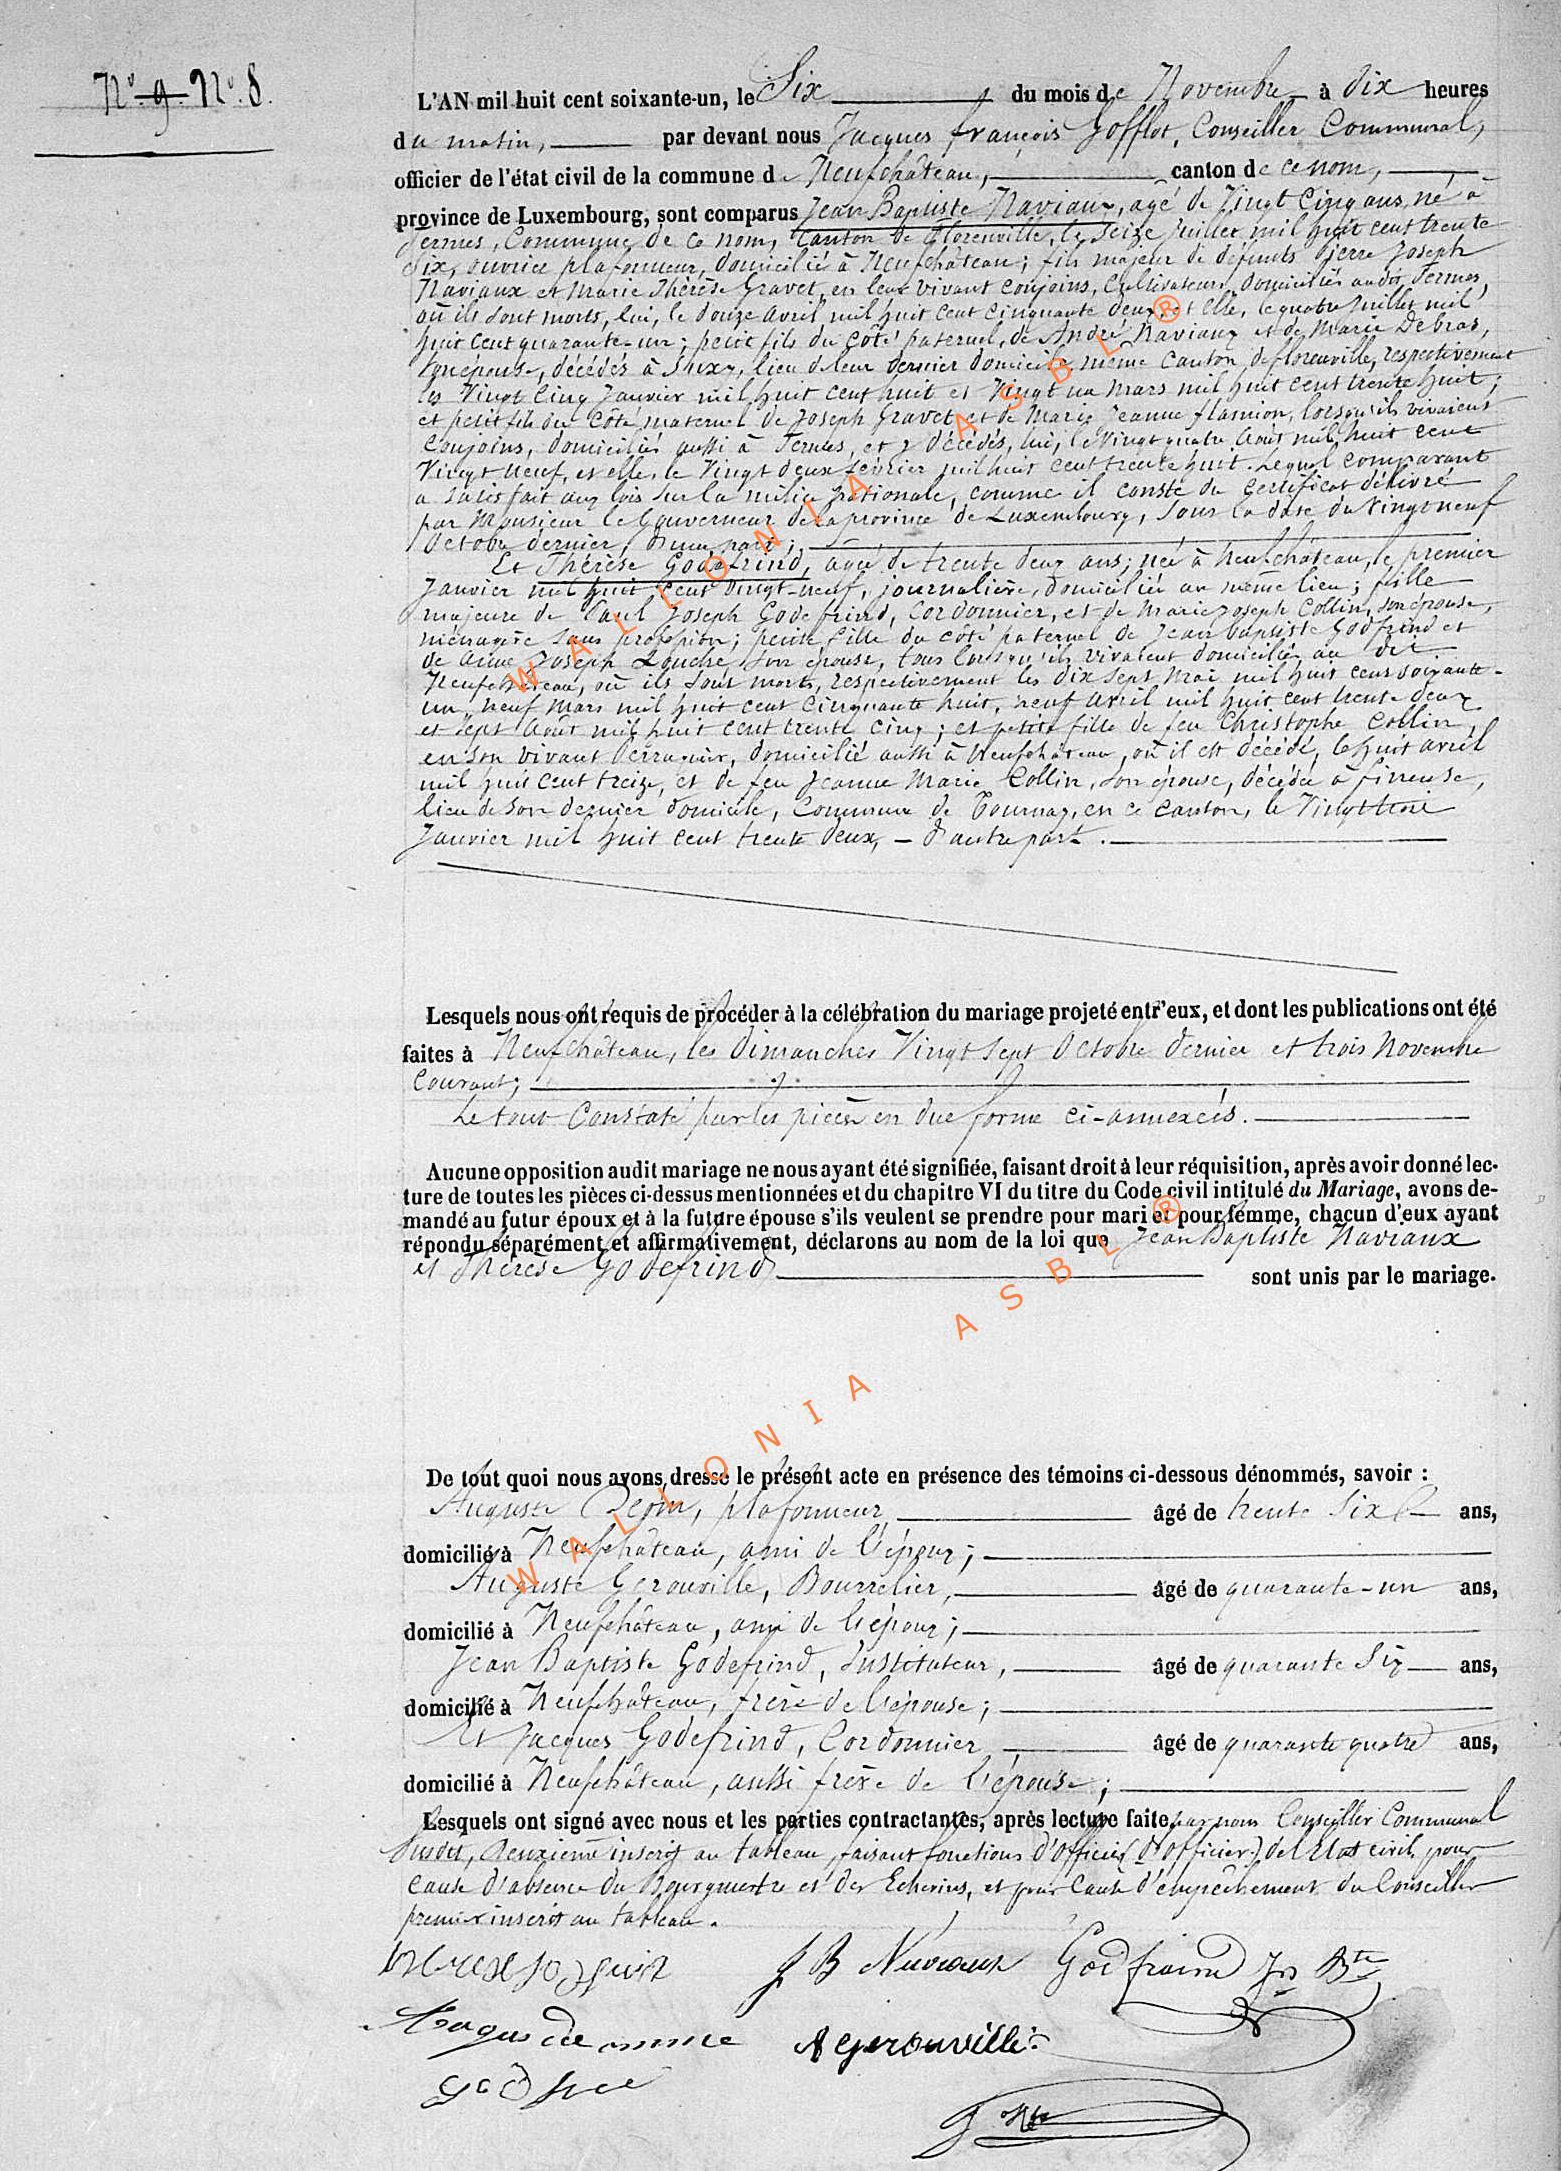 N° 9. N° 8.
L'AN mil huit cent soixante-un, le Six du mois de Novembre à dix heures
du matin, par devant nous Jacques françois Gofflot, Conseiller Communal,
officier de l'état civil de la commune de Neufchâteau, canton de ce nom,
province de Luxembourg, sont comparus Jean Baptiste Naviaux, agé de Vingt Cinq ans, né à
Termes, Commune de ce nom, Canton de Florenville, le Seize Juillet mil huit cent trente
Six, ouvrier plafonneur, domicilié à Neufchâteau; fils majeur de défunts Pierre Joseph
Naviaux et Marie Thérèse Gravet, en leur vivant conjoins, Cultivateurs, domiciliés audit Termes,
où ils sont morts, lui, le douze avril mil huit cent cinquante deux et elle, le quatre Juillet mil
huit cent quarante-un; petit fils du côté paternel, de André Naviaux et de Marie Debras,
son épouse, décédés à Suxy, lieu de leur dernier domicile, même canton de florenville, respectivement
les Vingt Cinq Janvier mil huit cent huit et Vingt un Mars mil huit cent trente huit;
et petit fils du Côté maternel de Joseph Gravet et de Marie Jeanne flamion, lorsqu'ils vivaient
conjoins, domiciliés aussi à Termes, et y décédés, lui, le Vingt quatre Août mil huit cent
Vingt neuf, et elle, le Vingt deux février mil huit cent trente huit. Lequel comparant
a satisfait aux lois sur la milice nationale, comme il conste du Certificat délivré
par Monsieur le Gouverneur de la province de Luxembourg, sous la date du Vingt neuf
Octobre dernier, d'une part;
Et Thérèse Godefrind, agée de trente deux ans; née à Neufchâteau, le premier
Janvier mil huit cent vingt-neuf, journalière, domiciliée au même lieu; fille
majeure de Paul Joseph Godefrind, Cordonnier, et de Marie Joseph Collin, son épouse,
ménagère sans profession; petite fille du côté paternel de Jean baptiste Godfrind et
de Anne Joseph Louche, son épouse, tous lorsqu'ils vivaient domiciliés au dit
Neufchâteau, où ils sont morts, respectivement les dix sept Mai mil huit cent soixante-
un, neuf Mars mil huit cent cinquante huit, neuf avril mil huit cent trente deux
et sept Août mil huit cent trente cinq; et petite fille de feu Christophe Collin,
en son vivant Serrurier, domicilié aussi à Neufchâteau, où il est décédé, le huit avril
mil huit cent treize, et de feu Jeanne Marie Collin, son épouse, décédée à fineuse,
lieu de son dernier domicile, Commune de Tournay, en ce canton, le Vingt trois
Janvier mil huit cent trente deux, - d'autre part.
Lesquels nous ont requis de procéder à la célébration du mariage projeté entr'eux, et dont les publications ont été
faites à Neufchâteau, les dimanches Vingt sept Octobre dernier et trois Novembre
courant;
Le tout constaté par les pièces en due forme ci-annexées.
Aucune opposition audit mariage ne nous ayant été signifiée, faisant droit à leur réquisition, après avoir donné lec-
ture de toutes les pièces ci-dessus mentionnées et du chapitre VI du titre du Code civil intitulé du Mariage, avons de-
mandé au futur époux et à la future épouse s'ils veulent se prendre pour mari et pour femme, chacun d'eux ayant
répondu séparément et affirmativement, déclarons au nom de la loi que Jean Baptiste Naviaux
et Thérèse Godefrind sont unis par le mariage.
De tout quoi nous avons dressé le présent acte en présence des témoins ci-dessous dénommés, savoir :
Auguste Deom, plafonneur âgé de trente Six ans,
domicilié à Neufchâteau, ami de l'époux;
Auguste Gerouville, Bourrelier, âgé de quarante-un ans,
domicilié à Neufchâteau, ami de l'époux;
Jean Baptiste Godefrind, Instituteur, âgé de quarante Six ans,
domicilié à Neufchâteau, frère de l'épouse;
Et Jacques Godefrind, Cordonnier âgé de quarante quatre ans,
domicilié à Neufchâteau, aussi frère de l'épouse;
Lesquels ont signé avec nous et les parties contractantes, après lecture faite par nous Conseiller Communal
susdit, deuxième inscrit au tableau, faisant fonctions d'officier (d'officier) de l'état civil, pour
cause d'absence du Bourgmestre et des Echevins, et pour cause d'empêchement du Conseiller
premier inscrit au tableau.
J B Naviaux Godfrind Jn Bte
A Gerouville
WALLONIA ASBL ®
WALLONIA ASBL ®